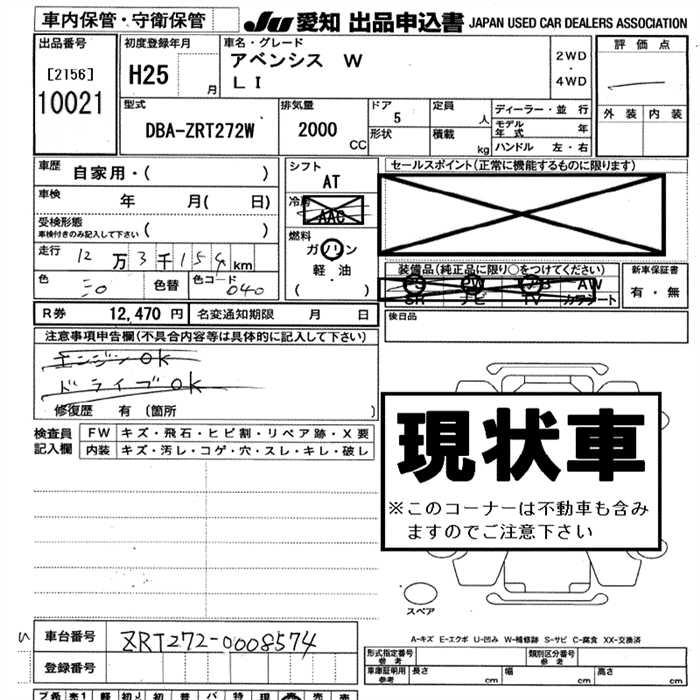 車内保管・守衛保管 JU 愛知 出品申込書 JAPAN USED CAR DEALERS ASSOCIATION
出品番号 初度登録年月 車名・グレード 評価点
[2156] H25 月 アベンシス W 2WD
・
10021 LI 4WD
外装 内装
型式 排気量 ドア 定員 ディーラー・並行
DBA-ZRT272W 2000 CC 5 人 モデル年式 年
形状 積載 kg ハンドル 左・右
車歴 自家用・( ) シフト セールスポイント(正常に機能するものに限ります)
AT
車検 年 月( 日) 冷房
AAC
受検形態 ( ) 燃料
車検付きのみ記入して下さい ガソリン
走行 12万3千154km 軽・油 装備品(純正品に限り○をつけてください) 新車保証書
PS PW AW
色 色替 色コード 040 ( ) SR ナビ TV カワシート 有・無
R券 12,470円 名変通知期限 月 日 後日品
注意事項申告欄(不具合内容等は具体的に記入して下さい)
エンジンOK
ドライブOK
修復歴 有(箇所 )
現状車
※このコーナーは不動車も含み
ますのでご注意下さい
検査員 FW キズ・飛石・ヒビ割・リペア跡・X要
記入欄 内装 キズ・汚レ・コゲ・穴・スレ・キレ・破レ
スペア
A-キズ E-エクボ U-凹み W-補修跡 S-サビ C-腐食 XX-交換済
車台番号 ZRT272-0008574
形式指定番号 参考 類別区分番号 参考
登録番号 車庫証明用参考 長さ cm 幅 cm 高さ cm